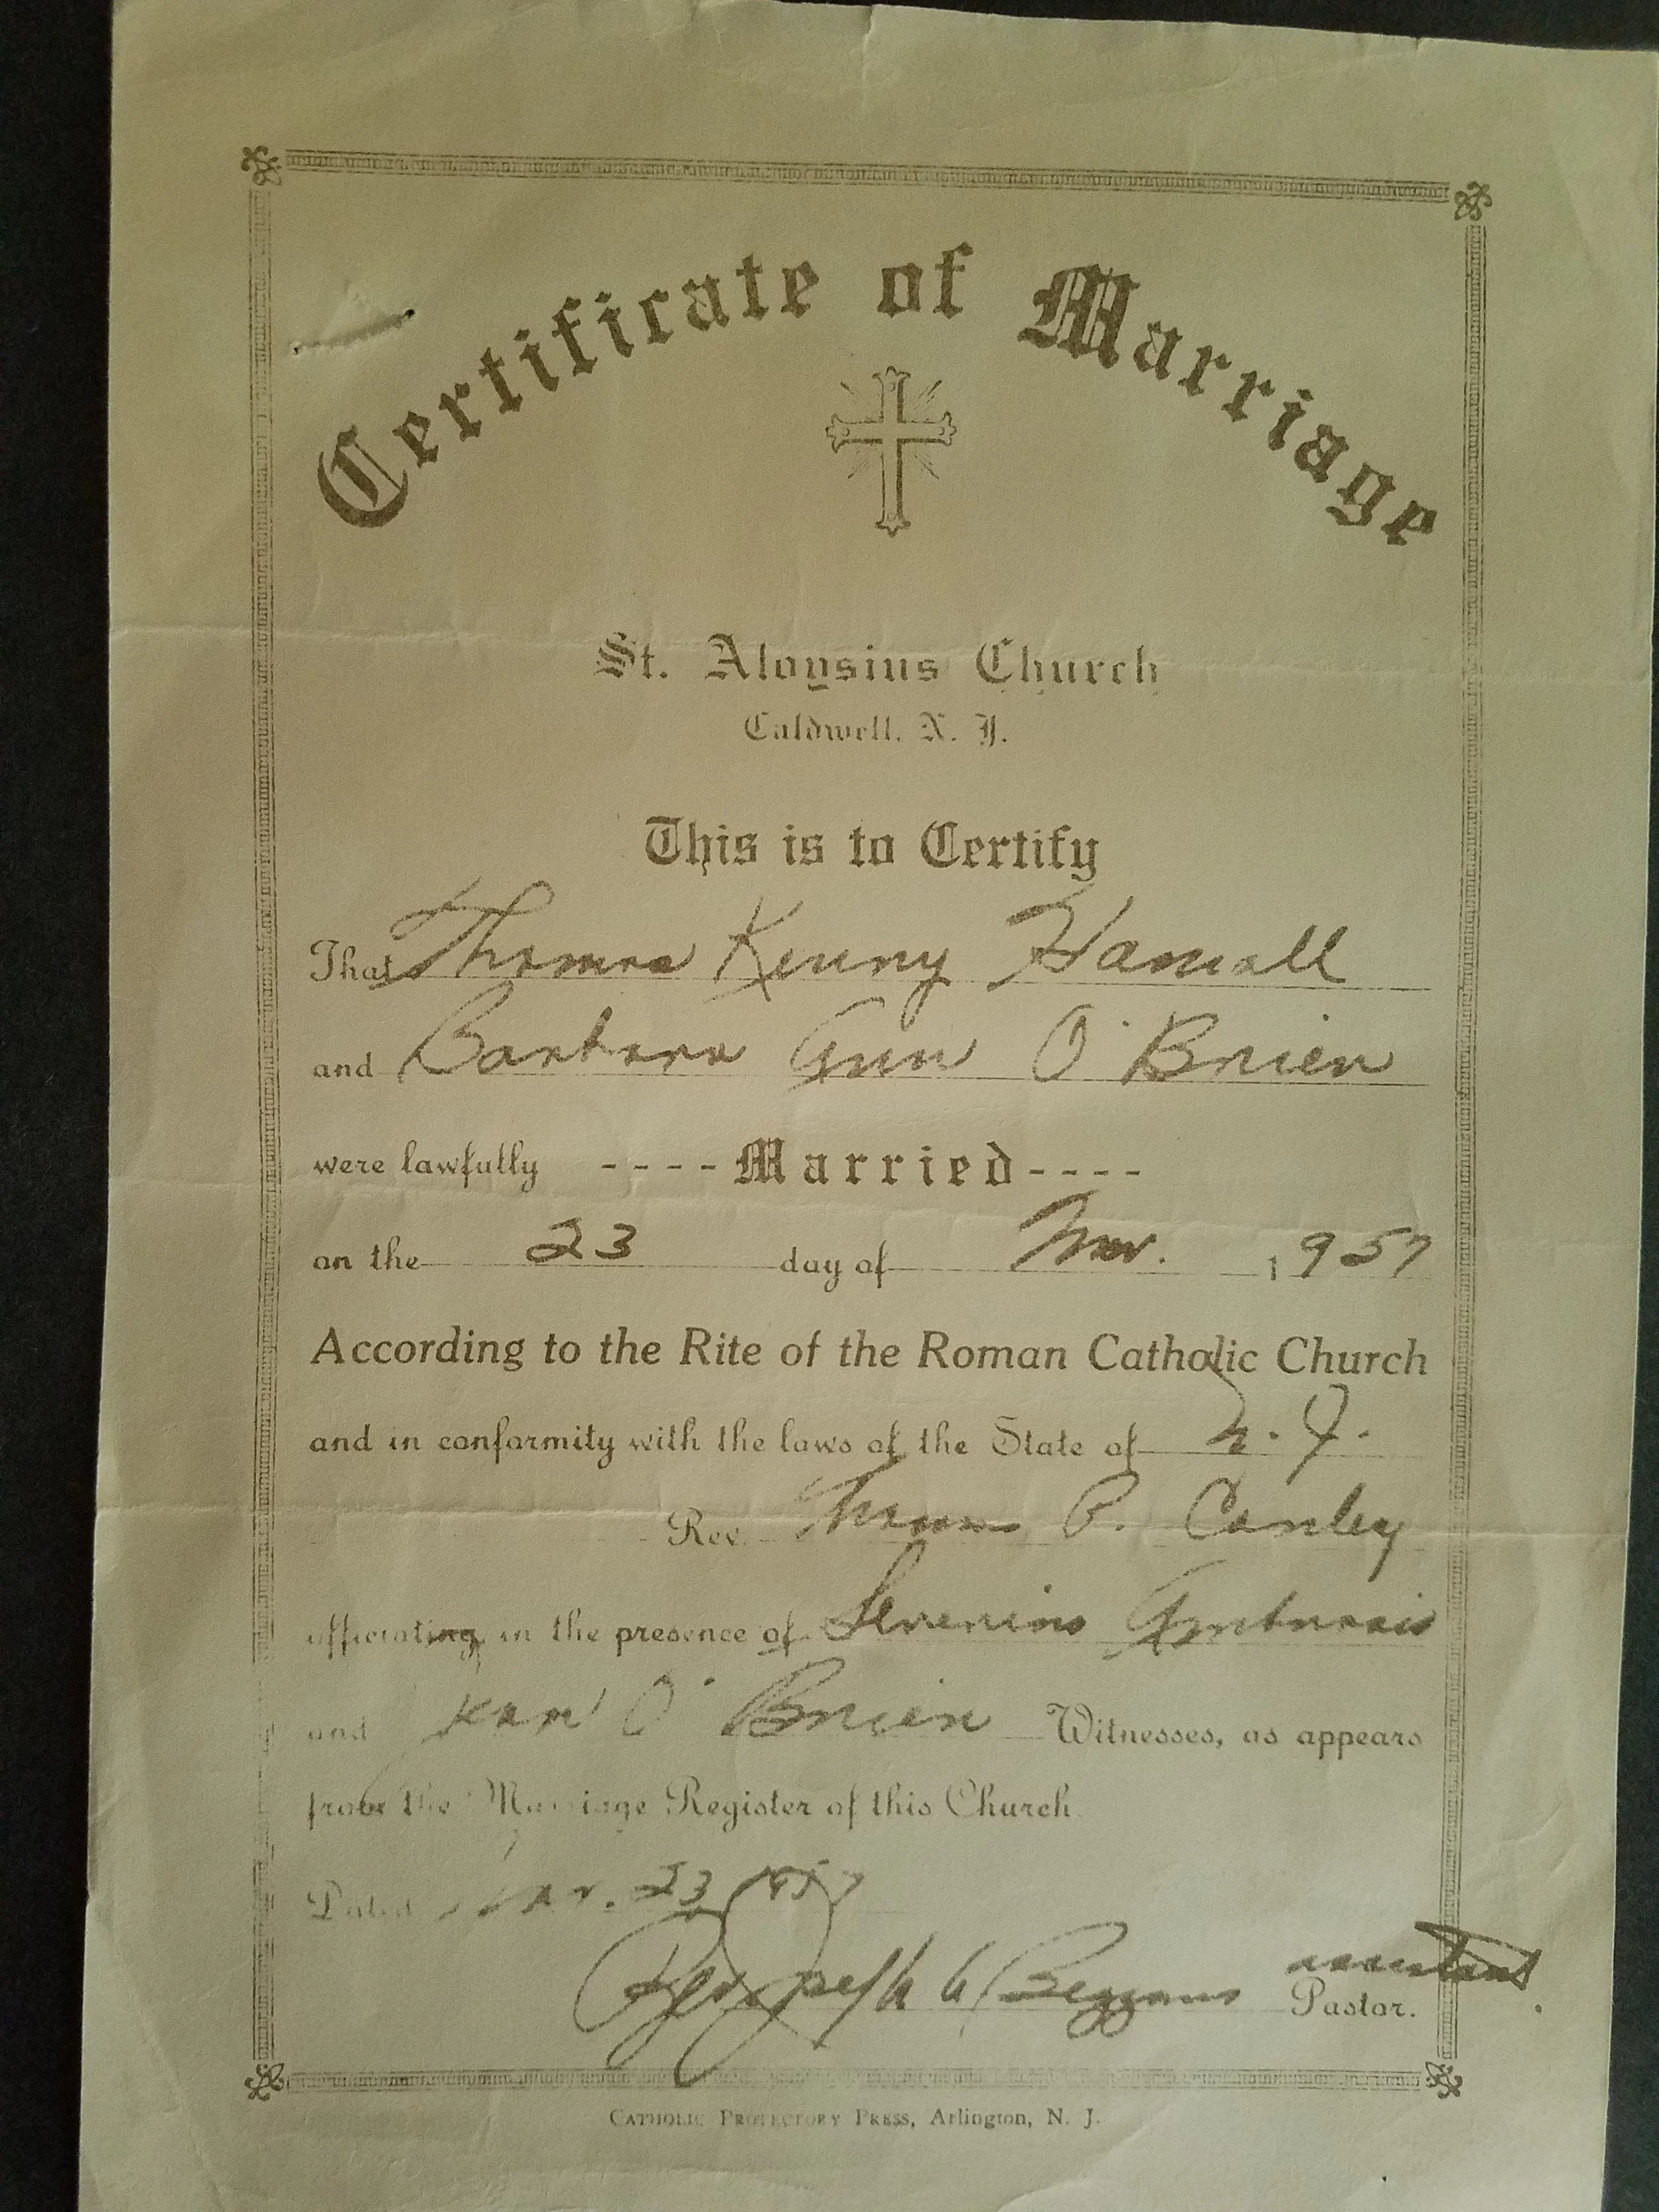 Certificate of Marriage
St. Aloysius Church
Caldwell, N. J.
This is to Certify
That Thomas Kenny Hamall
and Barbara Ann O'Brien
were lawfully ----Married----
on the 23 day of Nov. 1957
According to the Rite of the Roman Catholic Church
and in conformity with the laws of the State of N. J.
Rev. Thomas P. Conley
officiating in the presence of Severino
and O'Brien Witnesses, as appears
from the Marriage Register of this Church
Dated Nov. 23, 1957
Joseph A. Beggans assistant
Pastor.
CATHOLIC PROTECTORY PRESS, Arlington, N. J.